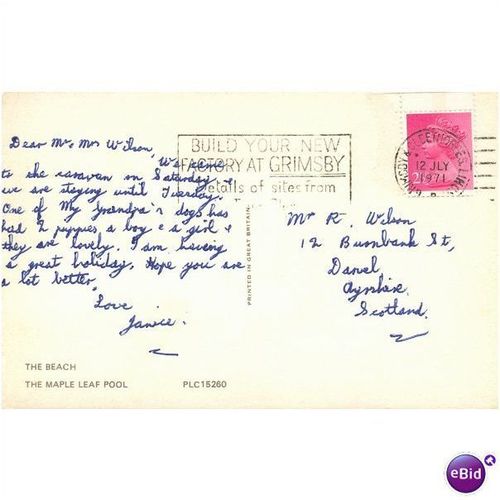 Dear Mr Mrs Wilson,
We came
to the caravan on Saturday, &
we are staying until Tuesday.
One of My Grandpa's dogs has
had 2 puppies, a boy & a girl &
they are lovely. I am having
a great holiday. Hope you are
a lot better,
Love
Janice.
BUILD YOUR NEW
FACTORY AT GRIMSBY
Details of sites from
12 JLY
1971
2½
PRINTED IN GREAT BRITAIN
Mr R. Wilson
12 Burnbank St,
Darvel,
Ayrshire,
Scotland.
THE BEACH
THE MAPLE LEAF POOL PLC15260
eBid